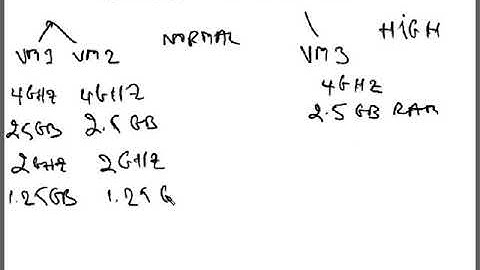 NORMAL
HIGH
VM1 VM2
VM3
4GHZ 4GHZ
4GHZ
2.5GB 2.5 GB
2.5 GB RAM
2GHZ 2GHZ
1.25GB 1.25 G